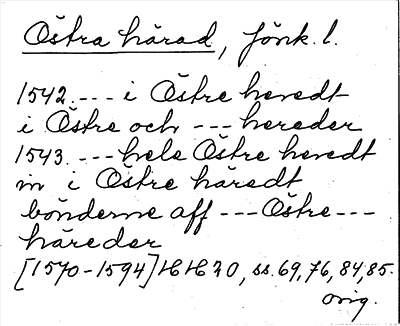 Östra härad, Jönk. l.
1542. --- i Östre heredt
i Östre och --- hereder
1543. --- hele Östre heredt
in i Östre häredt
bönderne aff --- Östre ---
häreder
[1570-1594] HH 20, ss. 69, 76, 84, 85.
orig.